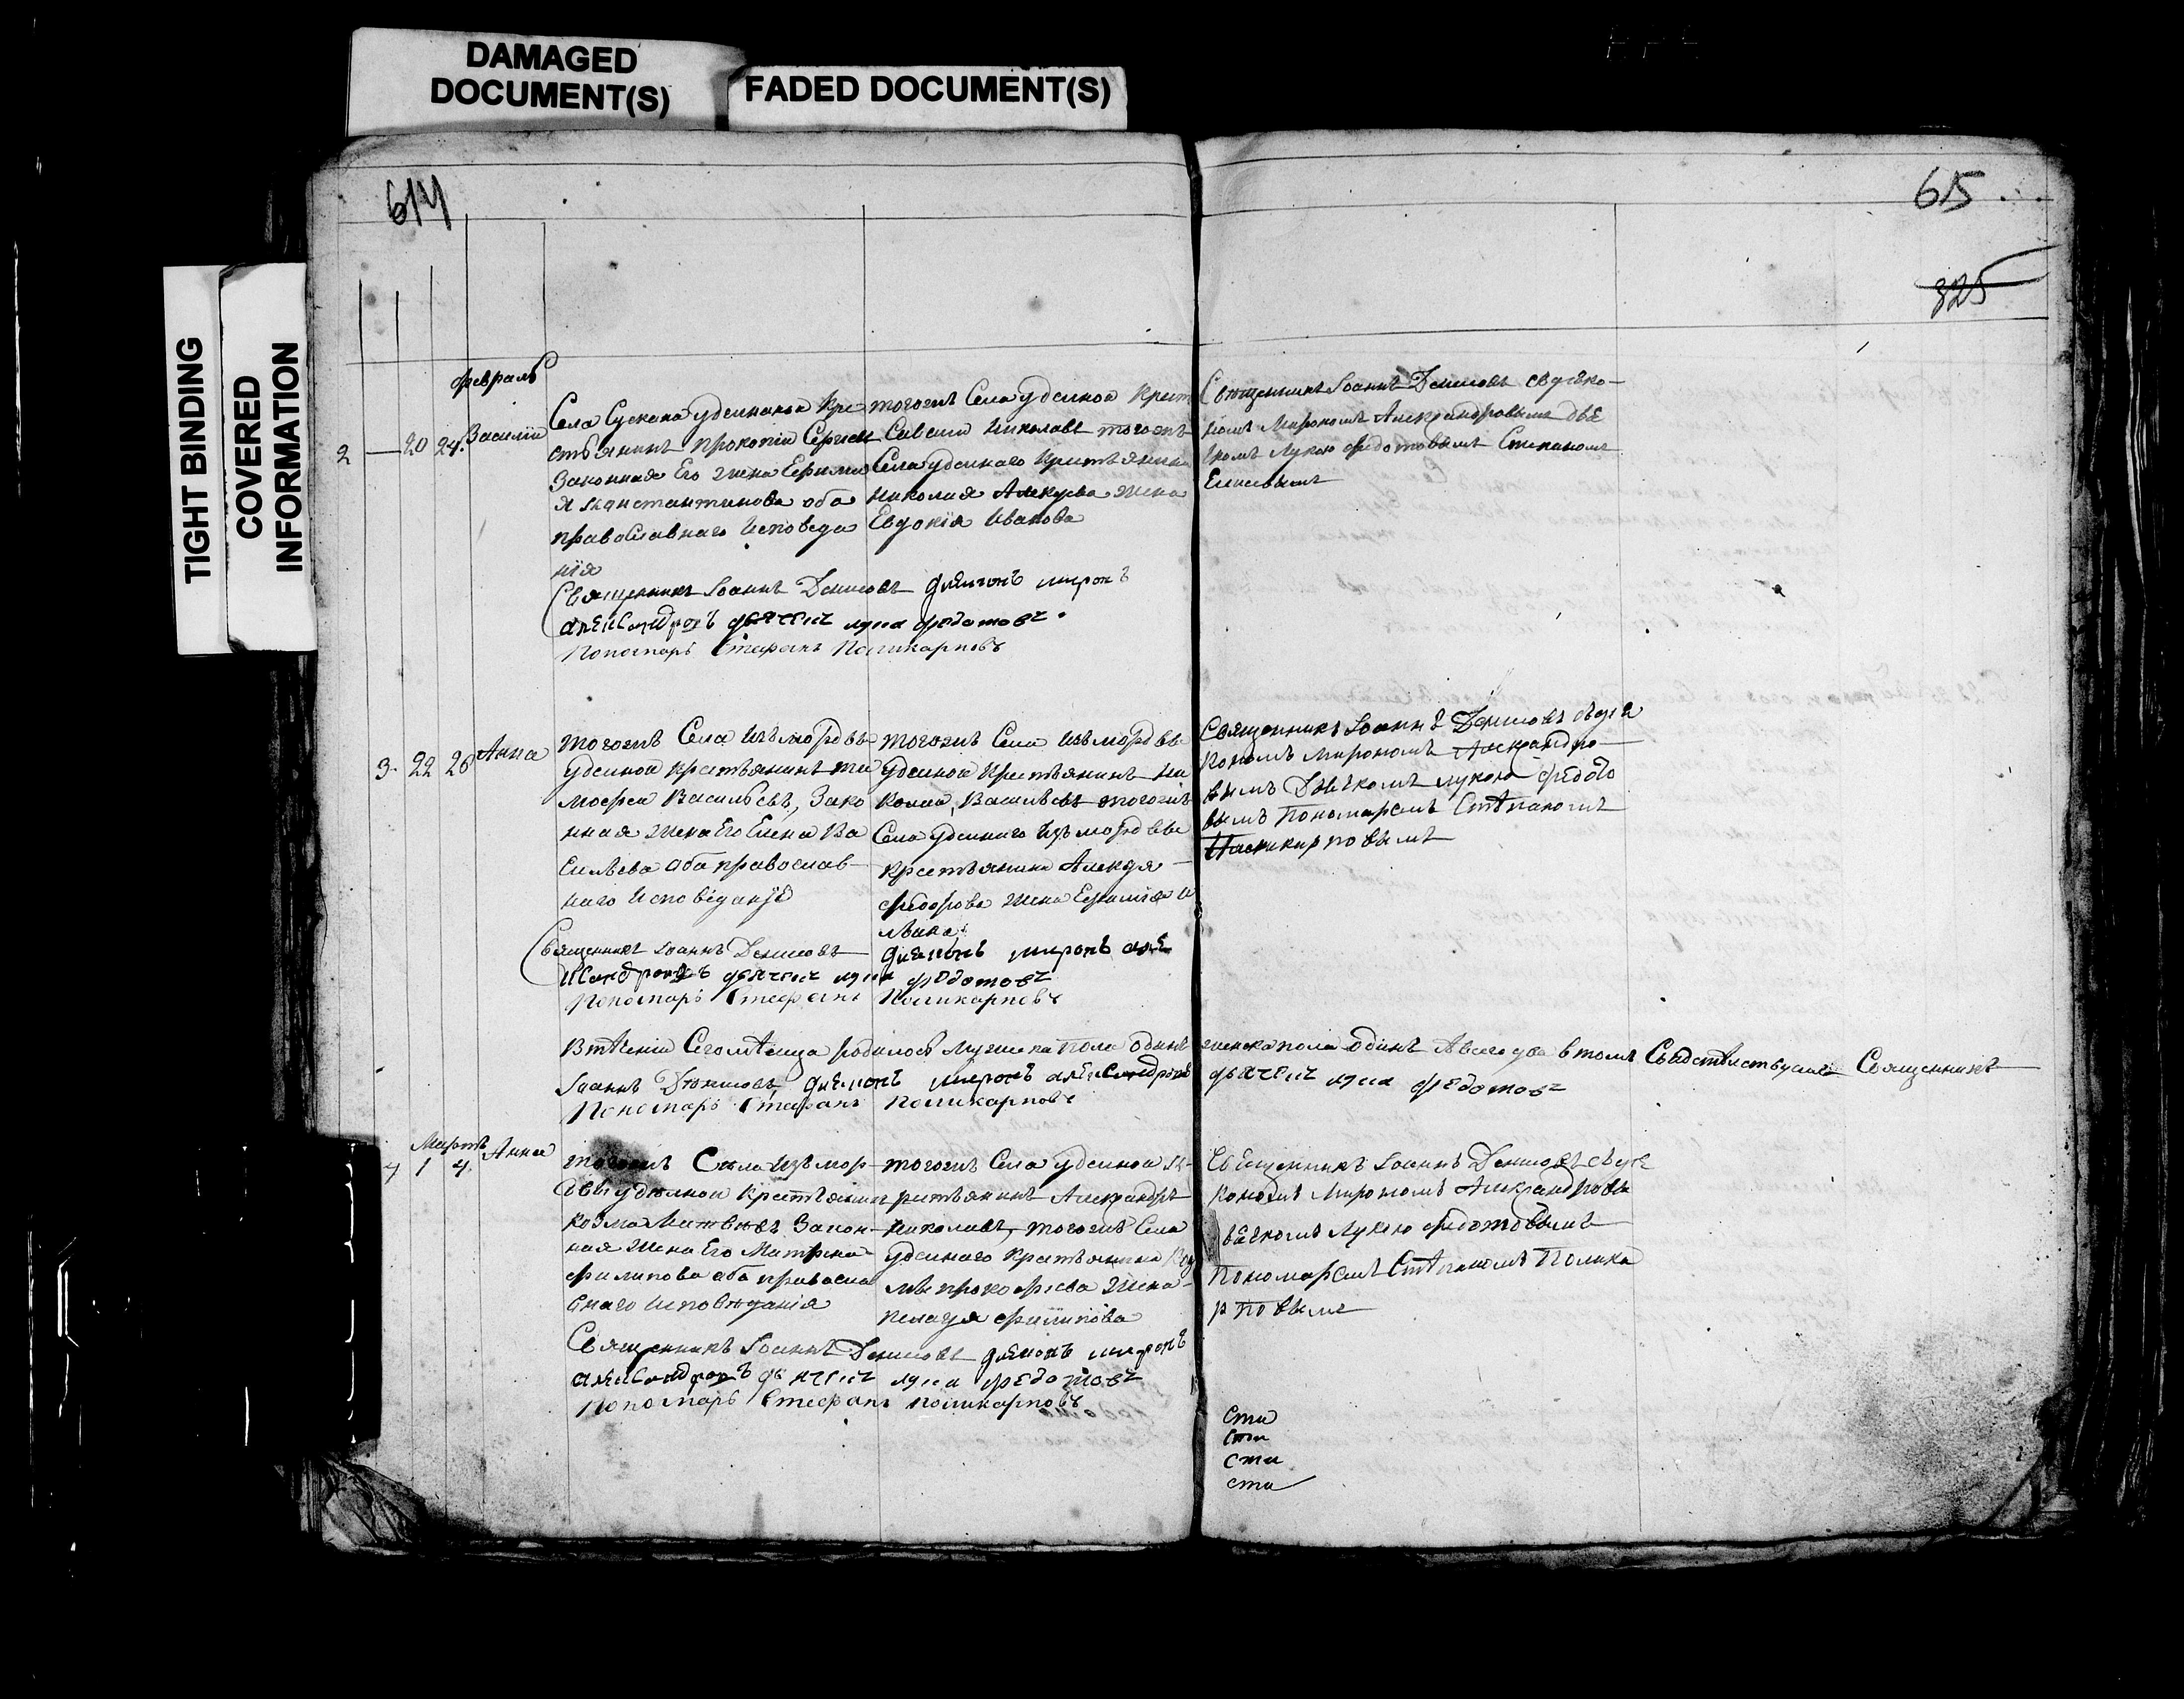 DAMAGED
DOCUMENT(S)
FADED DOCUMENT(S)
TIGHT BINDING
COVERED
INFORMATION
614
615
325
Февраль
2 — 20 24. Василий
Села Сускана удельнаго Кре-
стьянинъ Прокопій Сергѣевъ
Законная Его жена Ефимі
я Константинова оба
православнаго Исповеда
нія
тогожъ Села удельной Крест
Николаевъ тогожъ
Села удельнаго Крестьянина
Николая Алексѣева жена
Евдокія Иванова
Священникъ Іоаннъ Денисовъ съ діако-
номъ Мирономъ Александровымъ дья
Лукою Федотовымъ Стефаномъ
Священникъ Іоаннъ Денисовъ діаконъ миронъ
александровъ дьячекъ лука федотовъ
Пономарь Стефанъ Поликарповъ
3. 22 26 Анна
тогожъ Села изъ мордвы
удельной крестьянинъ ти
мофей Васильевъ, Зако
нная жена Его Елена Ва
сильева оба православ-
наго исповѣданія
тогожъ Села изъ мордвы
удельной Крестьянинъ Ни
колай Васильевъ тогожъ
Села удельнаго изъ мордвы
крестьянина Алексѣя
федорова жена Ефимія и
Священникъ Іоаннъ Денисовъ съ діа
кономъ Мирономъ Александро-
вымъ Дьячкомъ лукою Федото
вымъ Пономаремъ Стѣпаномъ
Поликарповымъ
Священникъ Іоаннъ Денисовъ діаконъ миронъ але
ксандровъ дьячекъ лука федотовъ
Пономарь Стефанъ Поликарповъ
В теченіи Сего мѣсяца родилось мужеска пола одинъ женска пола одинъ Авсего два в томъ Свидетельствуемъ Священникъ
Іоаннъ Денисовъ діаконъ миронъ александровъ дьячекъ лука федотовъ
Пономарь Стефанъ Поликарповъ
Мартъ
4 1 4. Анна
тогожъ Села Изъ мор-
двы удѣлной крестьянин
козма Матвѣевъ Закон-
ная жена Его Матрена
филипова оба правосла
внаго исповѣданія
тогожъ Села удельной к-
рестьянинъ Александръ
Николаевъ, тогожъ Села
удельнаго крестьянина Коз
мы прокофіева жена
пелагѣя филипова
Священникъ Іоаннъ Денисовъ съ діа
кономъ Мирономъ Александровы
Лукою федотовымъ
Пономаремъ Стѣпаномъ Полика
рповымъ
Священникъ Іоаннъ Денисовъ діаконъ миронъ
александровъ дьячекъ лука федотовъ
Пономарь Стефанъ поликарповъ
сти
сти
сти
сти